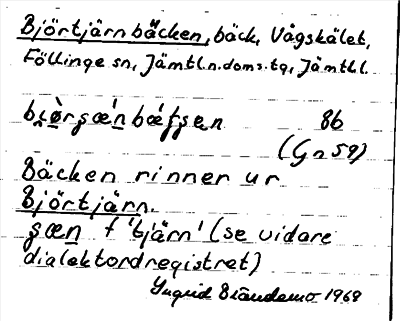 Björtjärnbäcken, bäck, Vågskälet,
Föllinge sn, Jämtl.n.doms.tg, Jämtl.l.
86
(Gn 59)
Bäcken rinner ur
Björtjärn.
f 'tjärn' (se vidare
dialektordregistret)
Ingrid 1969